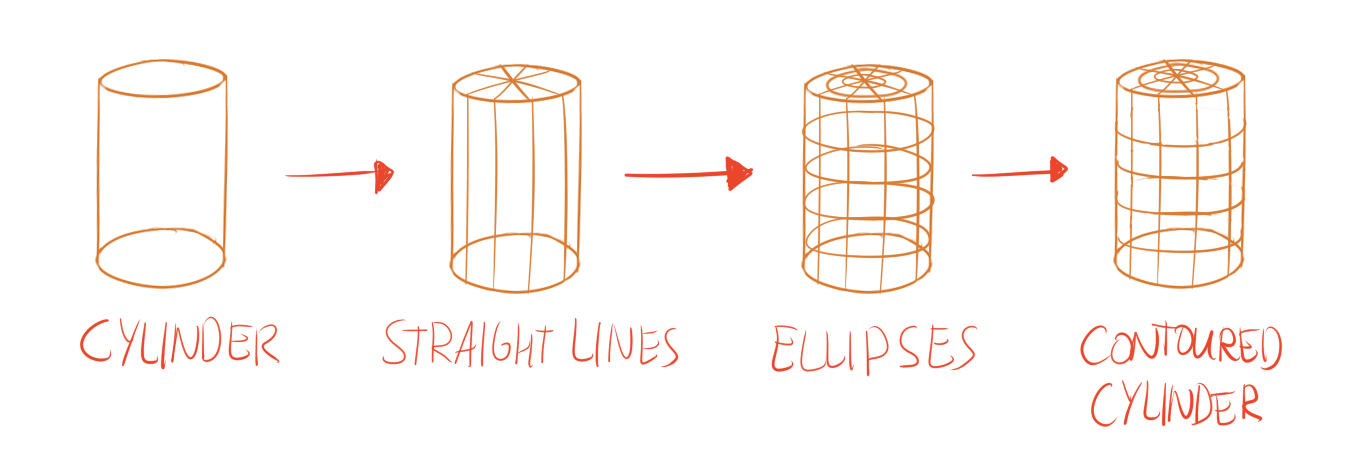 CYLINDER
STRAIGHT LINES
ELLIPSES
CONTOURED
CYLINDER